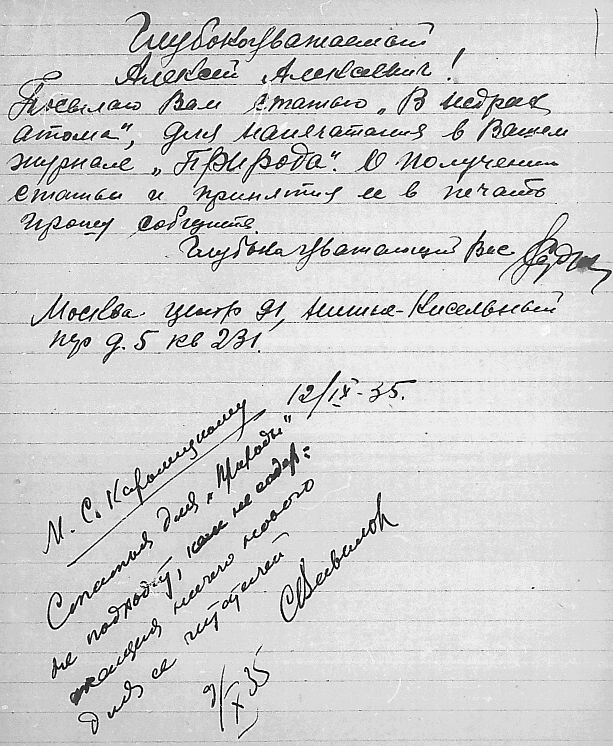 Глубокоуважаемый
Алексей Алексеевич!
Посылаю Вам статью „В недрах
атома", для напечатания в Вашем
журнале „Природа". О получении
статьи и принятия ее в печать
прошу сообщить.
Глубокоуважающий Вас
Москва центр 91, Нижне-Кисельный
пер д. 5 кв 231.
12/IX-35.
М. С. Каролицкому
Статья для „Природы"
не подходит, как не содер-
жащая ничего нового
для ее читателей
СВавилов
9/X 35